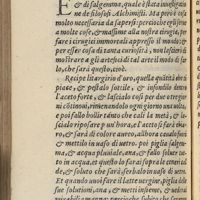 & di salgemme, quale è stata inuestigata
ne de filosofi Alchimisti. Ma proua cosi
molto necessaria da sapersi: perciò che serue
a molte cose, & massime alla nostra cirugia, te
fare i cirugici immortali appresso il modo: &
per esser cosa di tanta curiosità, mi
mostrare a gli artefici di tal arte il modo di fa
la, che sarà questo, cioè.
Recipe litargirio d'oro, quella quãtità che ti
piace, & pestalo sottile, & infondilo
l'aceto forte, & lascialo così per due o tre gior
ni cõtinoui, rimenandolo ogni giorno una uolta,
& poi fallo bollir tanto che cali la metà, & la
scialo riposare p un'hora, & t'aceto si farà
ro, & sarà di colore aureo, allhora caualo
& mettilo in uaso di uetro. poi piglia salgem
ma, & acqua pluuiale, ana, & fallo solue
to in acqua, & questo lo farai sopra le
de, & soluto che sarà serbalo in uaso di uetro
Et quando uuoi fare il latte uergine, piglia delle
due solutioni, ana, & metti insieme, &